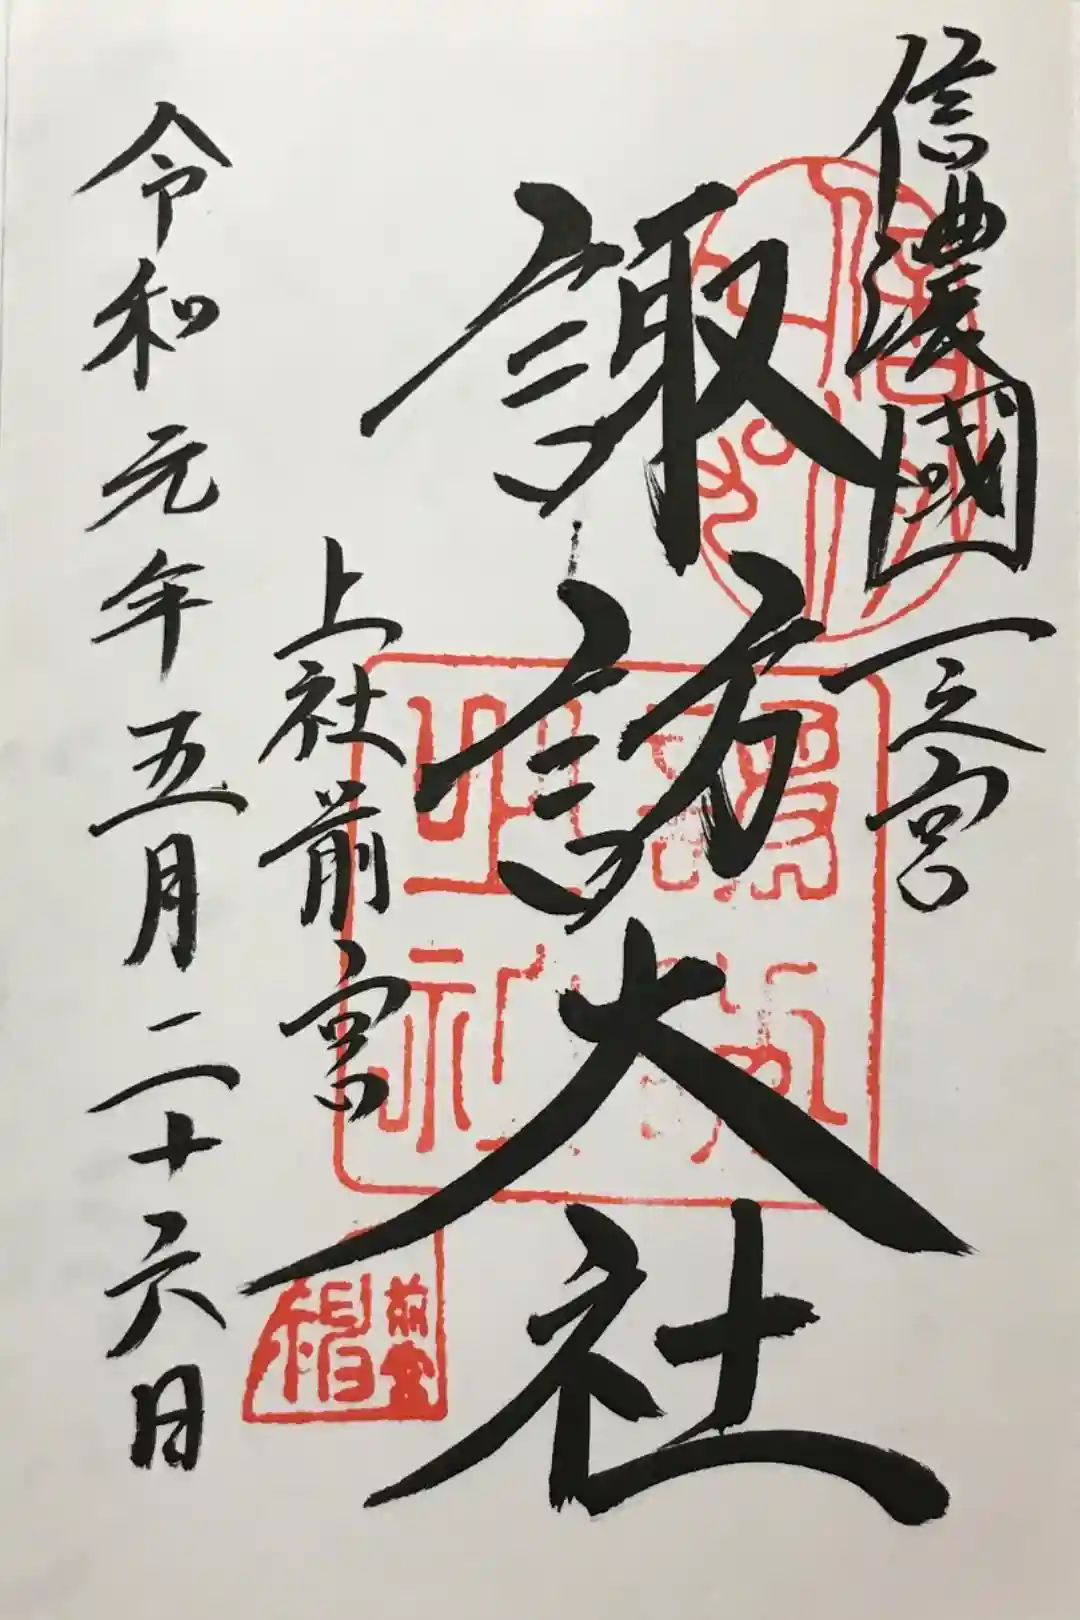 信濃國一之宮
諏訪大社
上社前宮
令和元年五月二十六日
前宮